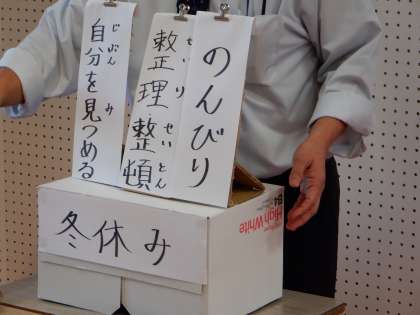 のんびり
整理整頓
せいり せいとん
自分を見つめる
じぶん み
冬休み
High White
B4